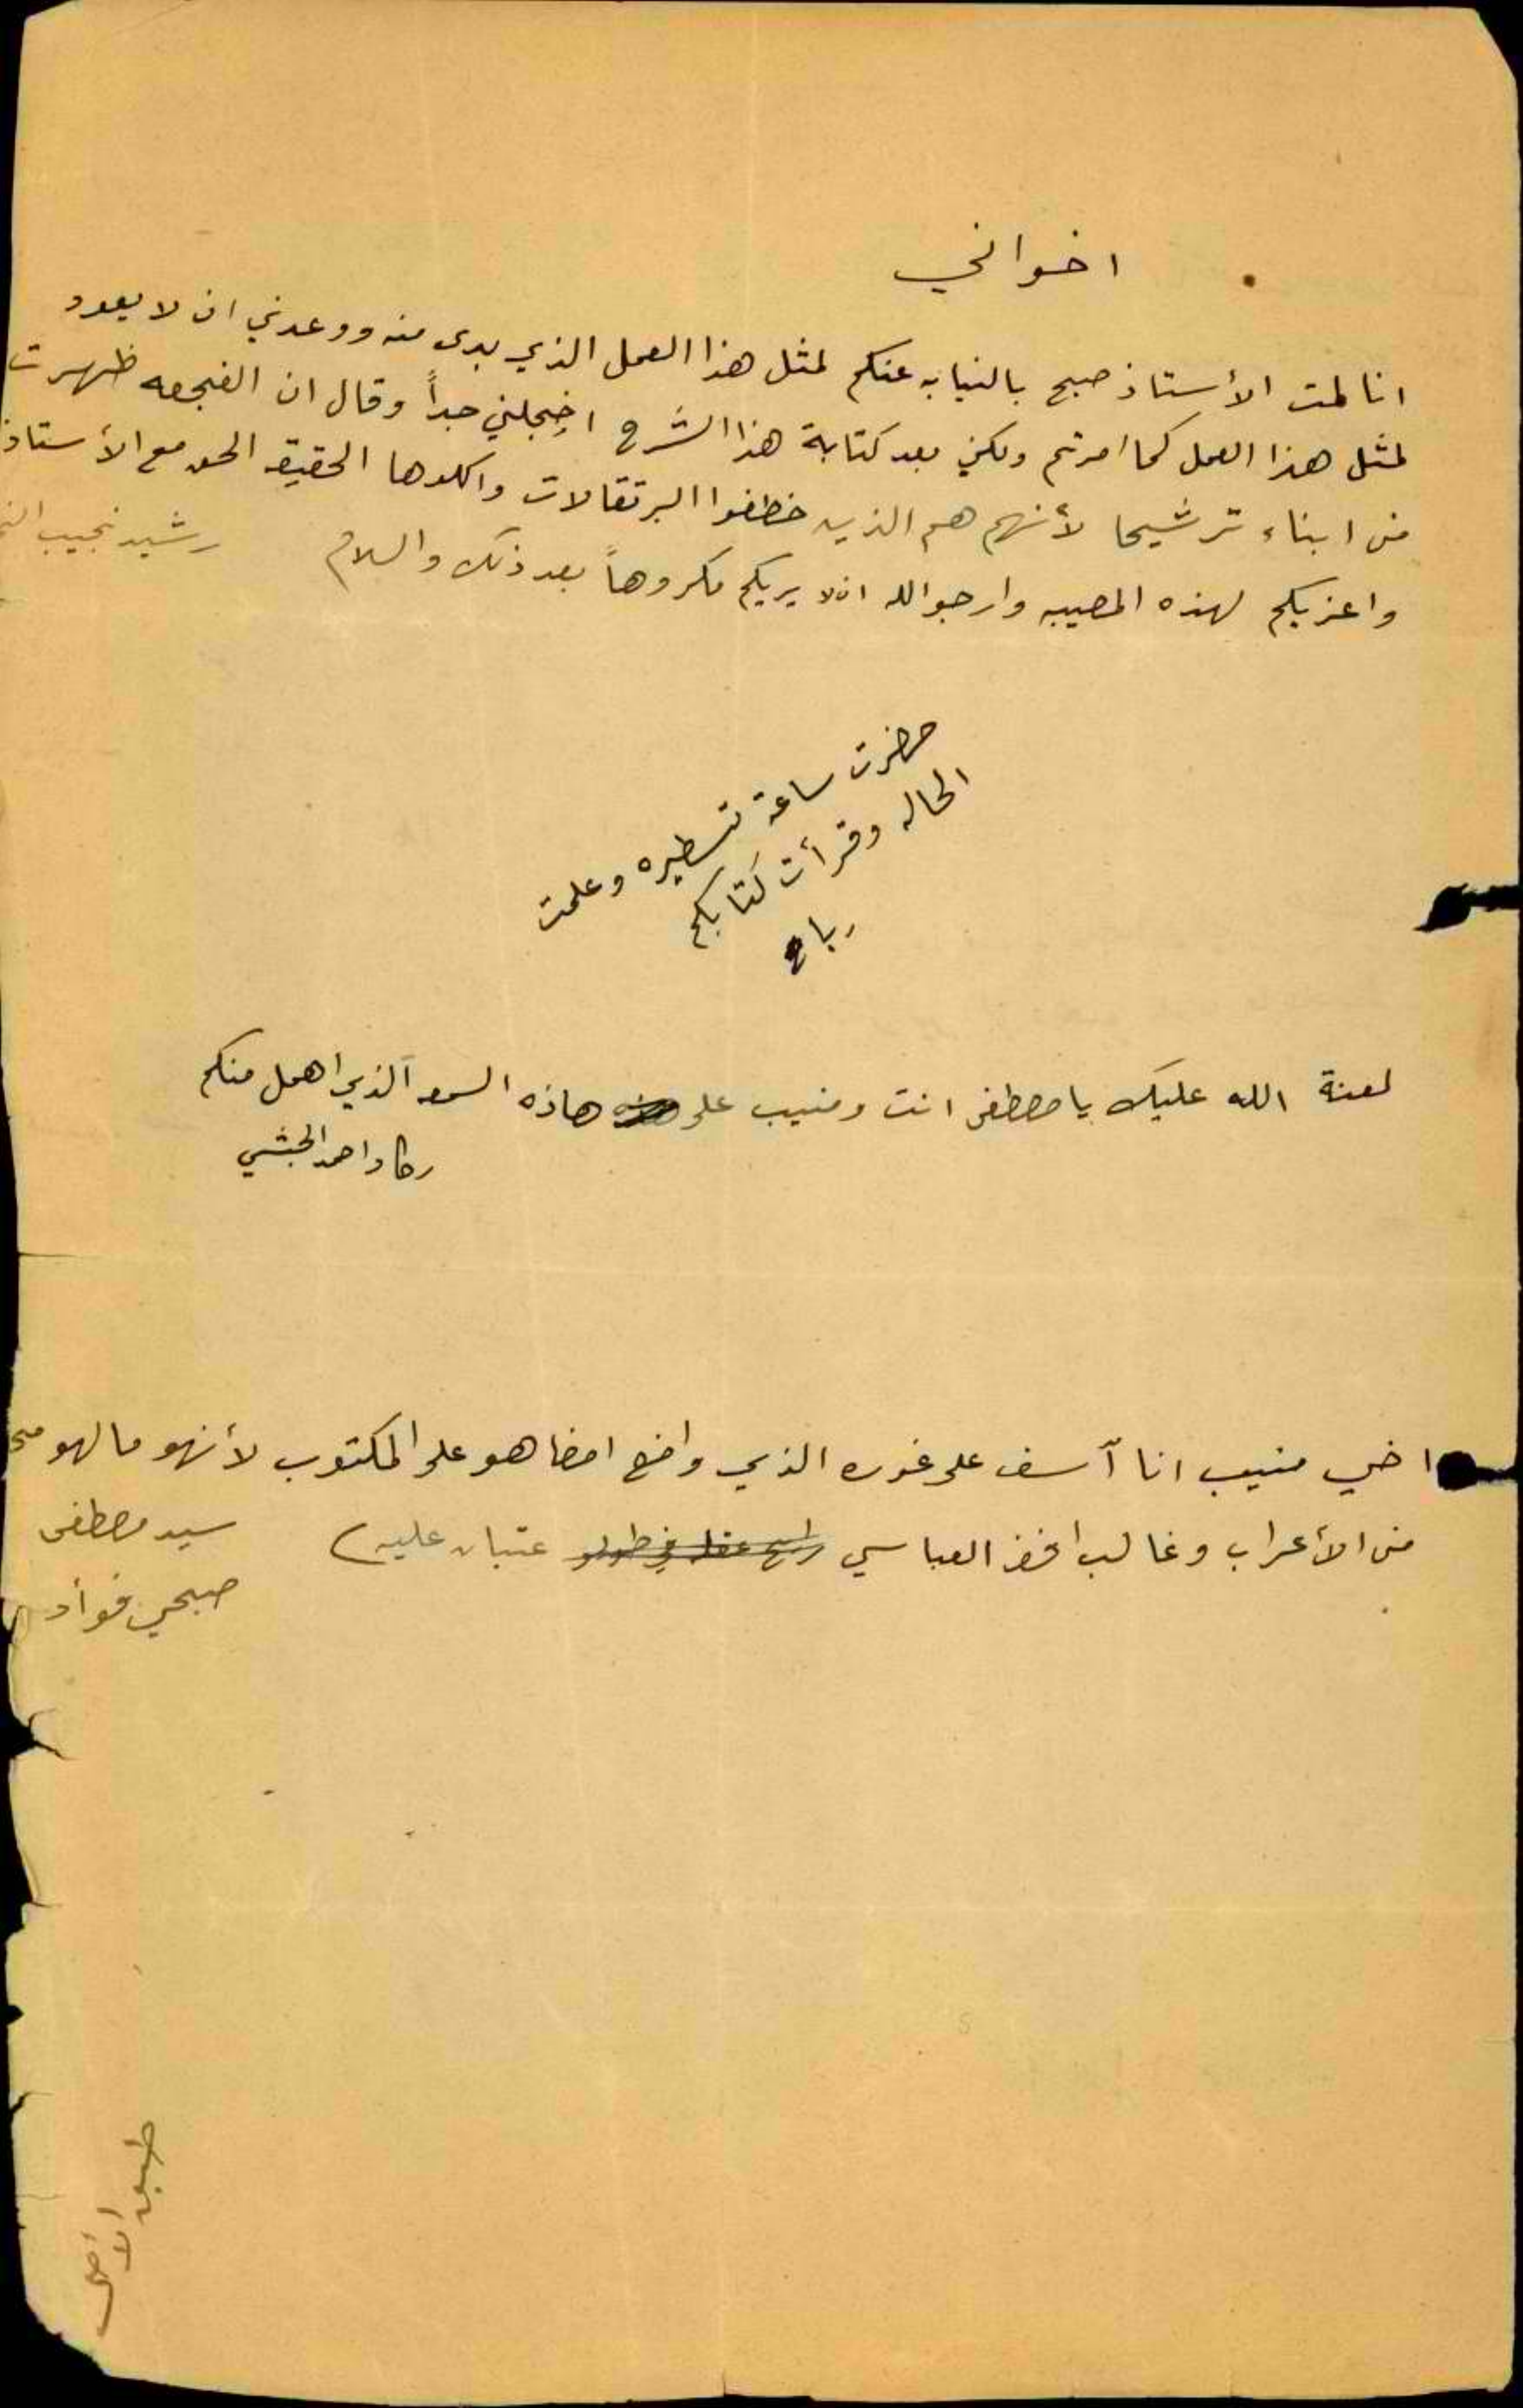 اخواني
انا لمت الأستاذ صبح بالنيابه عنكم لمثل هذا العمل الذي بدى منه ووعدني ان لا يعود
لمثل هذا العمل كما امرتم ولكني بعد كتابة هذا الشرح اخجلني جداً وقال ان الفجعه ظهرت
من ابناء ترشيحا لأنهم هم الذين خطفوا البرتقالات واكلوها الحقيقه الحق مع الأستاذ
واعزيكم لهذه المصيبه وارجوا الله ان لا يريكم مكروهاً بعد ذلك والسلام
رشيد نجيب
حضرت ساعة تسطيره وعلمت
الحاله وقرأت كتابكم
رباح
لعنة الله عليك يا مصطفى انت ومنيب على هاذه السمعه الذي اهمل منكم
واحمد الحبشي
اخي منيب انا آسف على غوره الذي واضع امضاهو على المكتوب لأنهو مالهو
من الأعراب وغالب افخذ العباسي عتبان عليه)
سيد مصطفى
صبحي فؤاد
طبق
الأصل